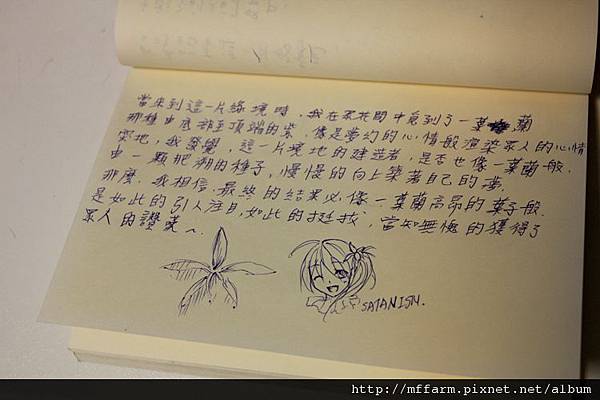 當來到這一片綠境時,我在眾花間中看到了一葉蘭
那種由底部至頂端的紫,像是夢幻的心情般渲染眾人的心情
突地,我發覺,這一片境地的建造者,是否也像一葉蘭般.
由一顆肥潤的種子,慢慢的向上築著自己的夢.
那麼.我相信.最終的結果必像一葉蘭高昂的葉子般.
是如此的引人注目,如此的挺拔,當如無愧的獲得了
眾人的讚美~.
SATANISM.
http://mffarm.pixnet.net/album